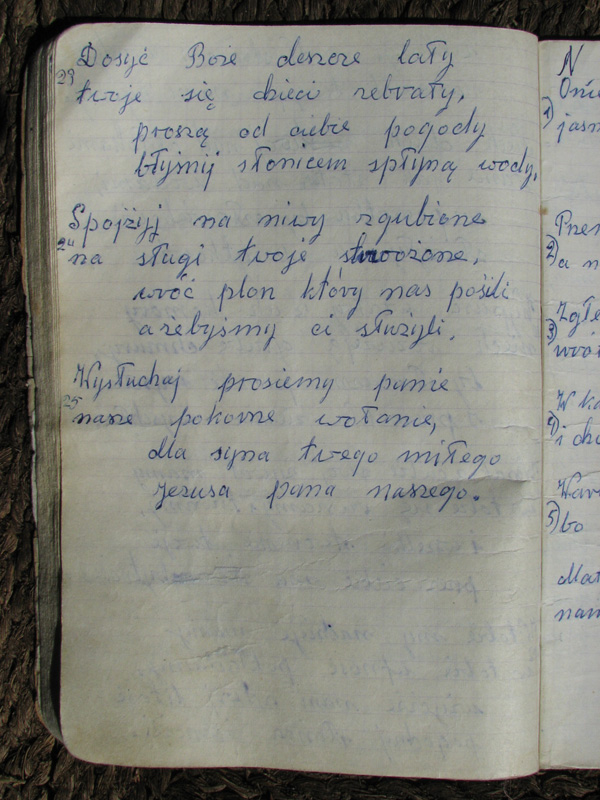 Dosyć Boże deszcze lały
23 twoje się dzieci zebrały,
proszą od ciebie pogody
błyśnij słońcem spłyną wody.
Spojżyj na niwy zgubione
24 na sługi twoje stwożone,
wróć plon który nas pośili
azebyśmy ci służyli.
Wysłuchaj prosiemy panie
25 nasze pokorne wołanie,
dla syna twego miłego
Jezusa pana naszego.
N
1)
jasn
2)
a n
3)
wró
W ka
4)
5) bo
Mat
nam